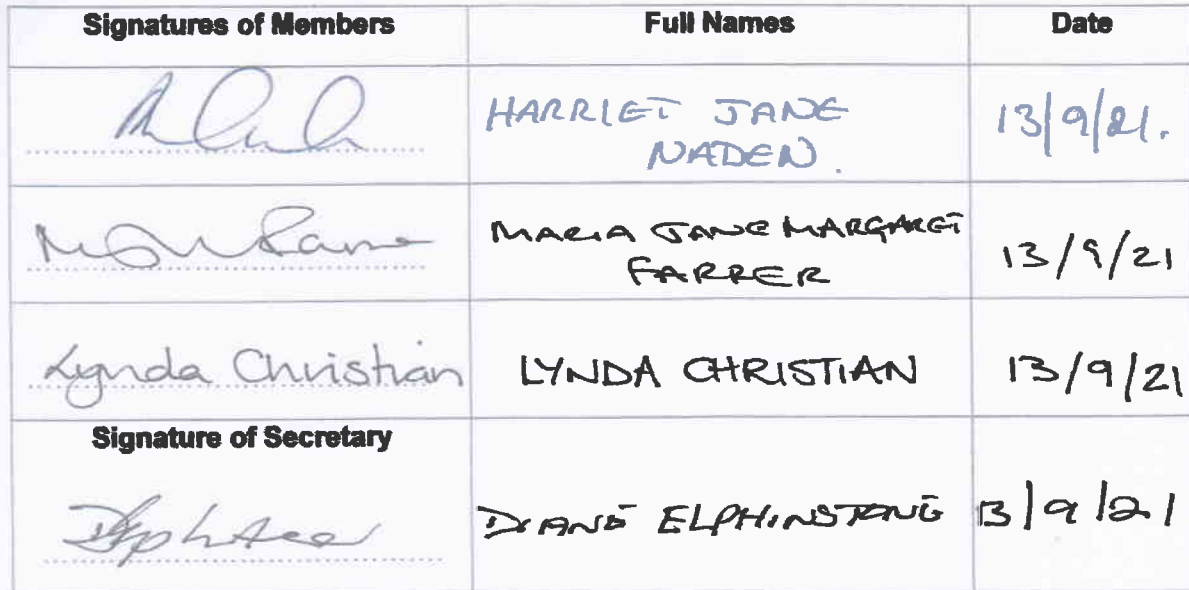 Signatures of Members Full Names Date
HARRIET JANE 13/9/21.
NADEN.
MARIA JANE MARGARET 13/9/21
FARRER
Lynda Christian LYNDA CHRISTIAN 13/9/21
Signature of Secretary
DIANE ELPHINSTONE 13/9/21